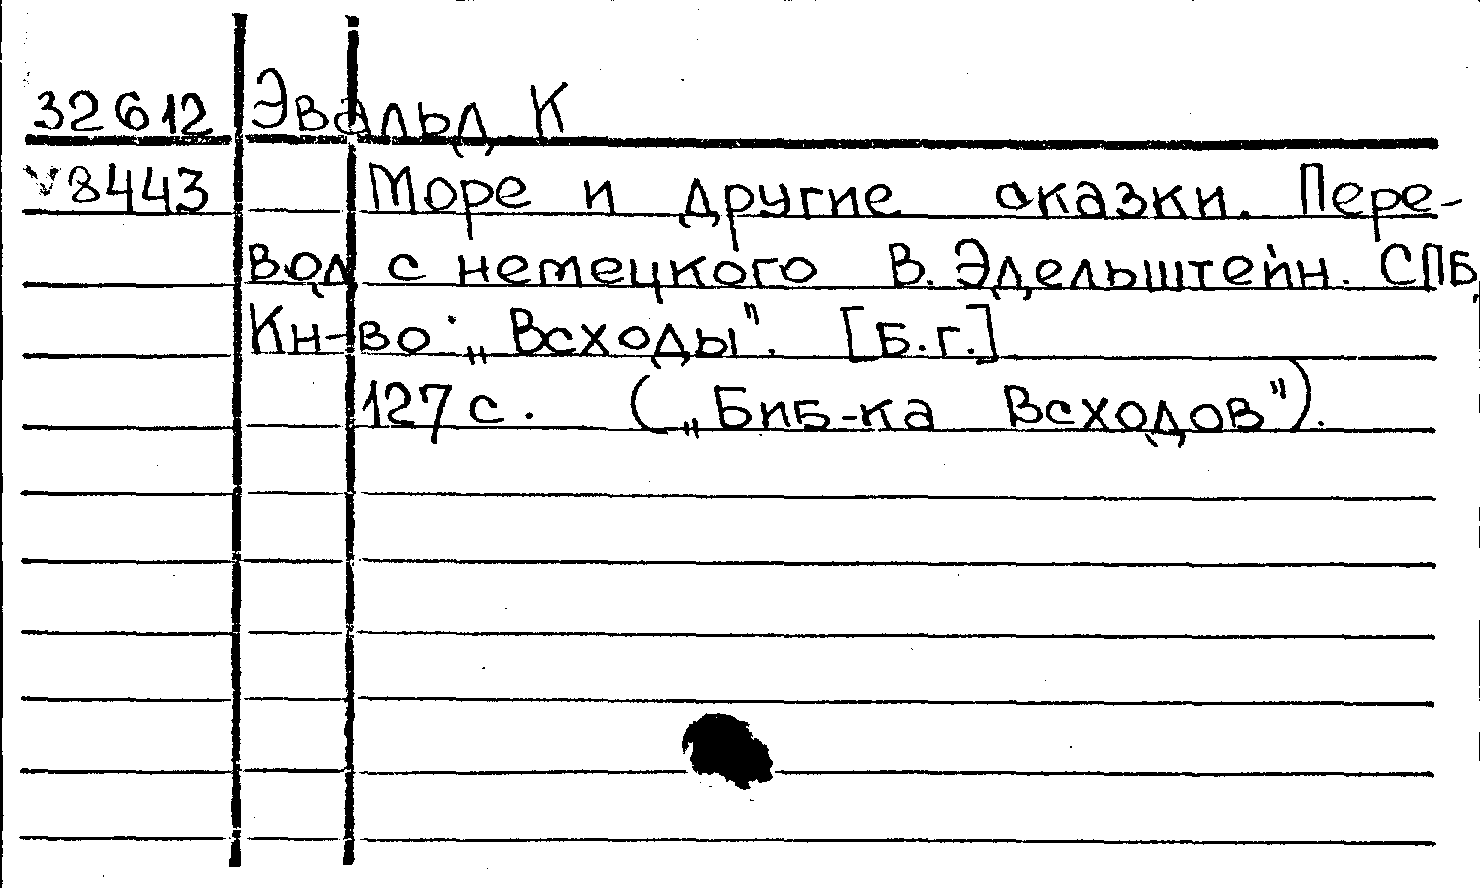 32612 Эвальд К
V8443 Море и другие сказки. Пере-
вод с немецкого В. Эдельштейн. СПБ,
Кн-во „Всходы". [Б.г.]
127 с. („Биб-ка Всходов").